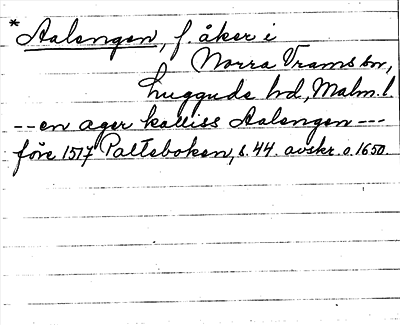 *Aalengen, f. åker i
Norra Vrams sn,
Luggude hd, Malm. l.
--en ager kalliss Aalengen---
före 1517 Palteboken, s. 44. avskr. o. 1650.